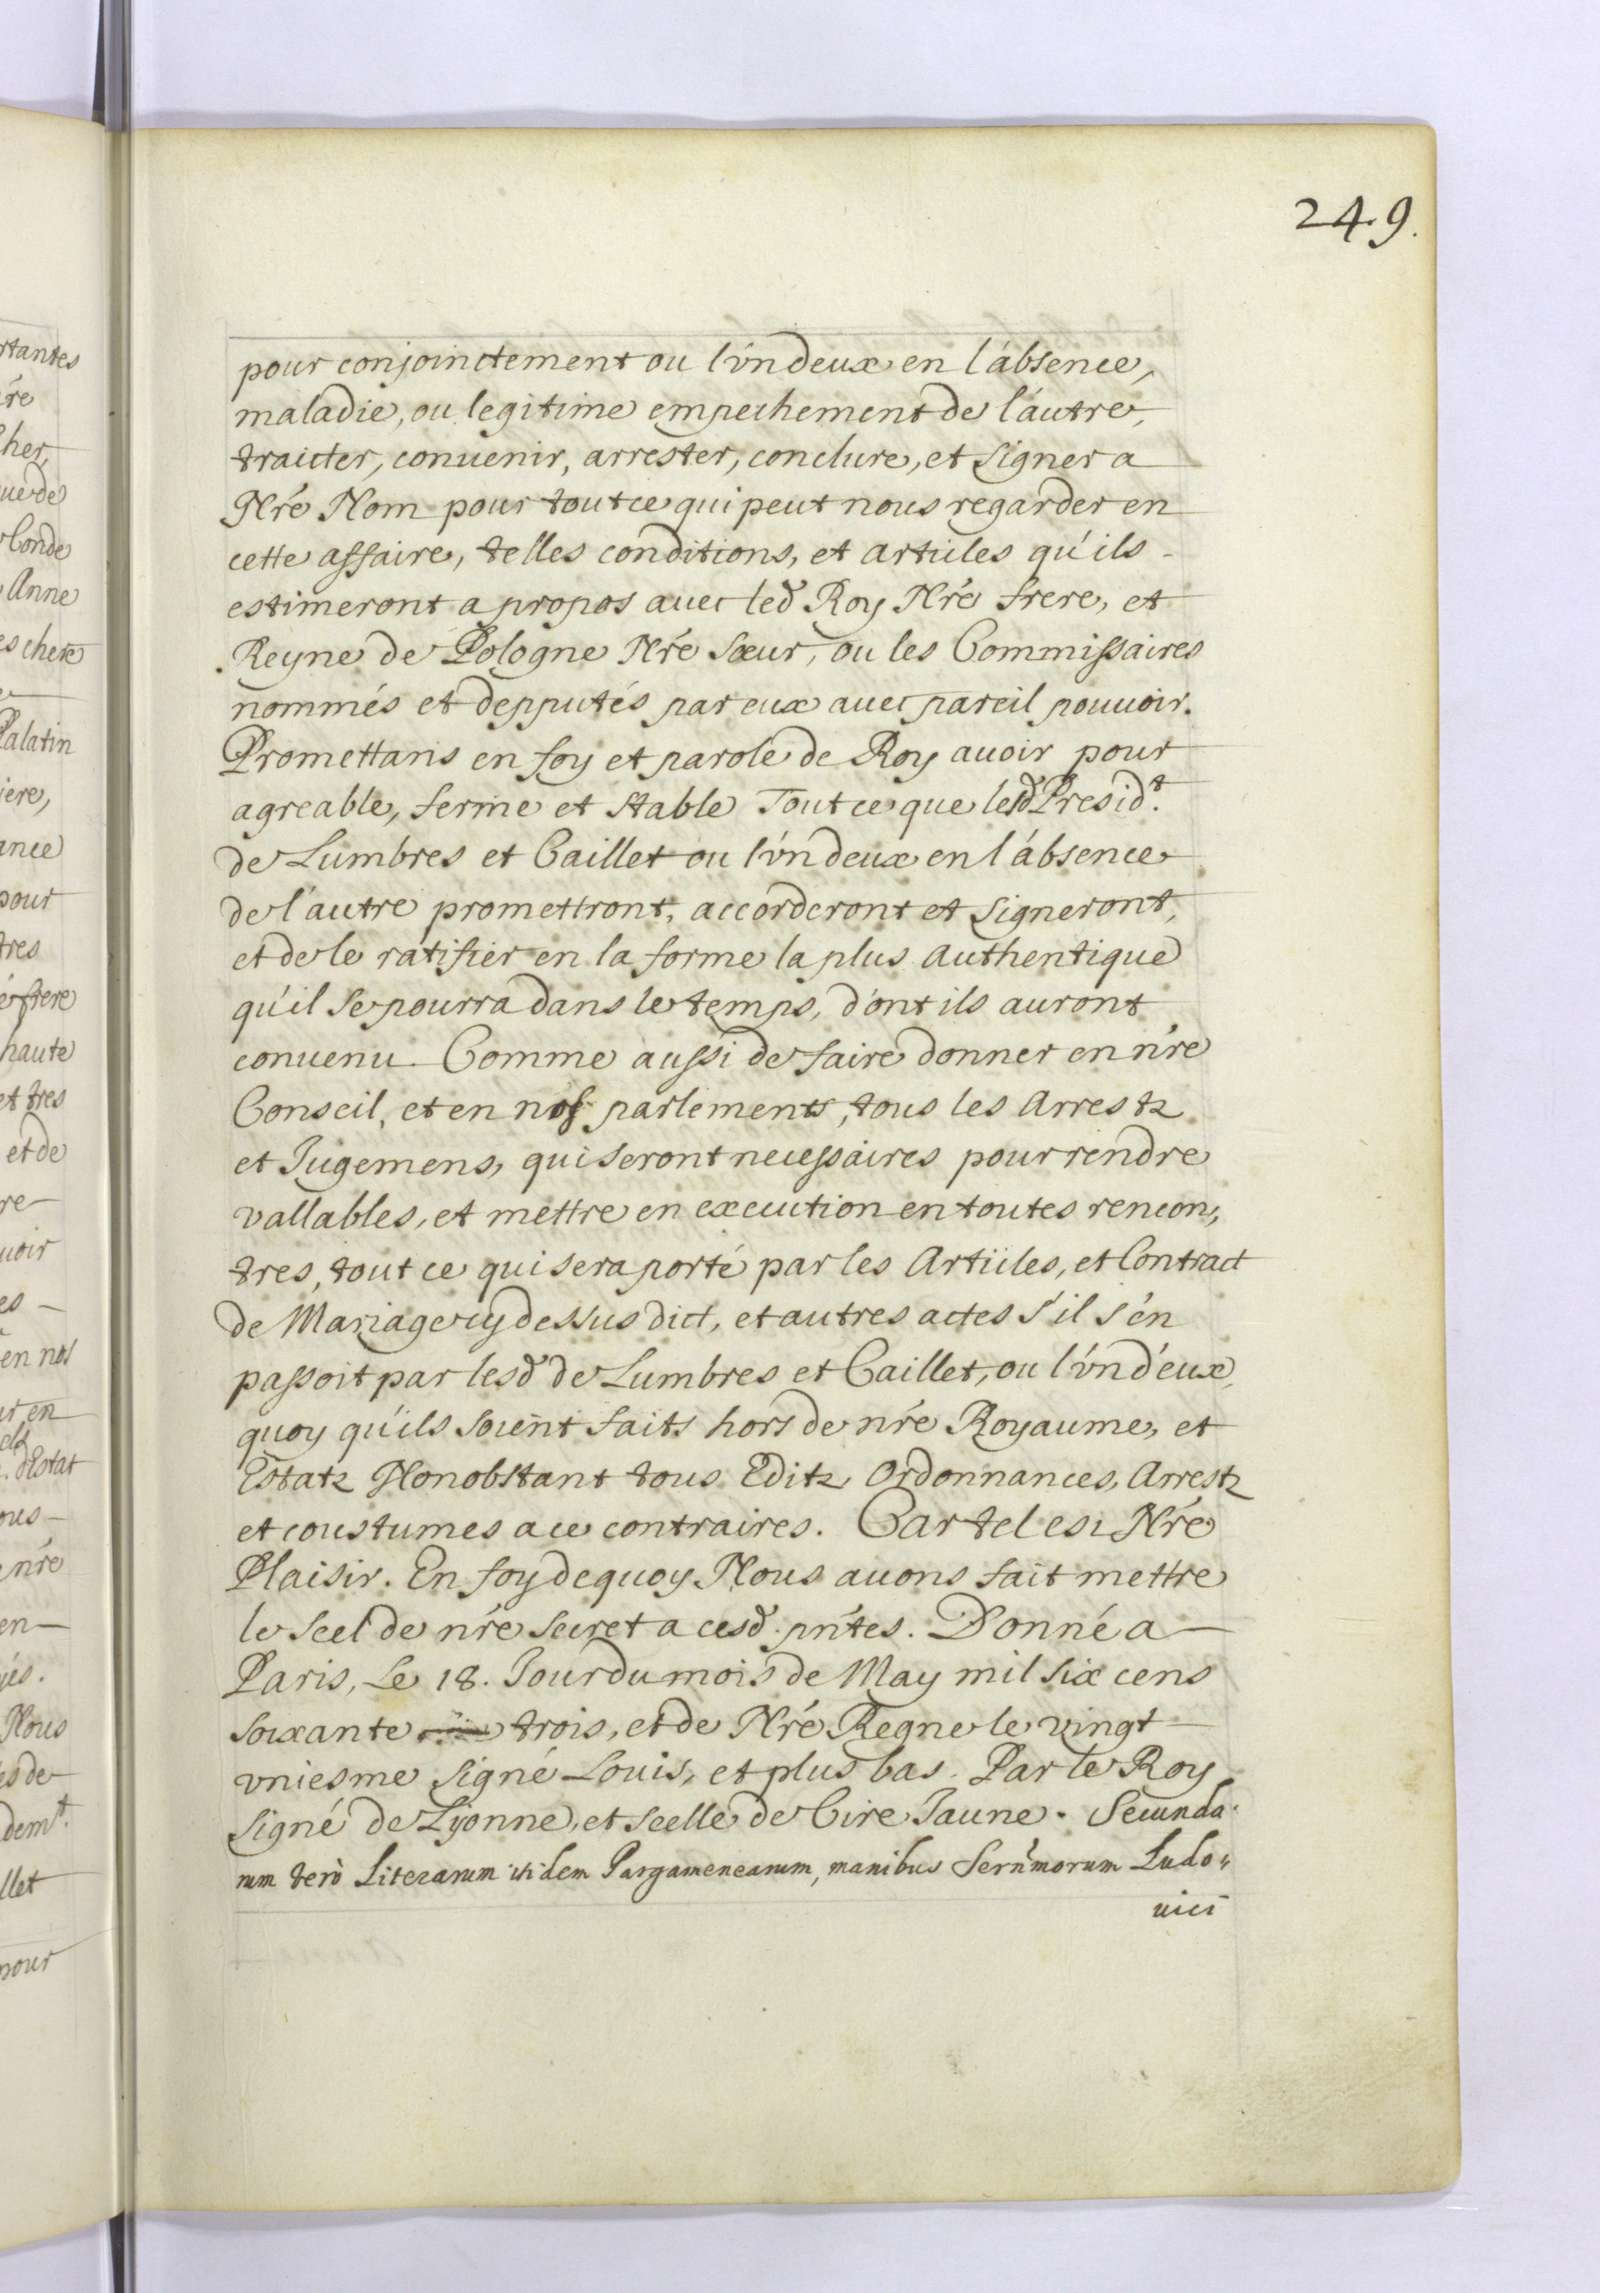 249.
pour conjoinctement ou l'vn deux en l'absence,
maladie, ou legitime empechement de l'autre,
traicter, conuenir, arrester, conclure, et signer a
Nré Nom pour tout ce qui peut nous regarder en
cette affaire, telles conditions, et articles qu'ils
estimeront a propos auec led Roy Nré frere, et
Reyne de Pologne Nré Sœur, ou les Commissaires
nommés et depputés par eux auec pareil pouuoir.
Promettans en foy et parole de Roy auoir pour
agreable, ferme et stable Tout ce que lesd Presidt.
de Lumbres et Caillet ou l'vn deux en l'absence
de l'autre promettront, accorderont et signeront,
et de le ratifier en la forme la plus Authentique
qu'il se pourra dans le temps, d'ont ils auront
conuenu. Comme aussi de faire donner en nré
Conseil, et en nos parlements, tous les Arrestz
et Jugemens, qui seront necessaires pour rendre
vallables, et mettre en execution en toutes rencon,
tres, tout ce qui sera porté par les Articles, et Contract
de Mariage cy dessus dict, et autres actes s'il s'en
passoit par lesd de Lumbres et Caillet, ou l'vn d'eux,
quoy qu'ils soient faits hors de nré Royaume, et
Estatz Nonobstant tous Editz Ordonnances, Arrestz
et coustumes a ce contraires. Car tel est Nré
Plaisir. En foy de quoy Nous auons fait mettre
le Seel de nré secret a cesd. pntes. Donné a
Paris, Le 18. Jour du mois de May mil six cens
soixante trois, et de Nré Regne le vingt
vniesme signé Louis, et plus bas. Par le Roy
signé de Lyonne, et scelle de Cire Jaune. Secunda
rum verò Literarum itidem Pargamenearum, manibus Sernmorum Ludo,,
uici
rtantes
her,
Anne
Palatin
iere,
ance
pour
tres
frere
haute
et tres
et de
uoir
en nos
dEstat
nré
Nous
llet